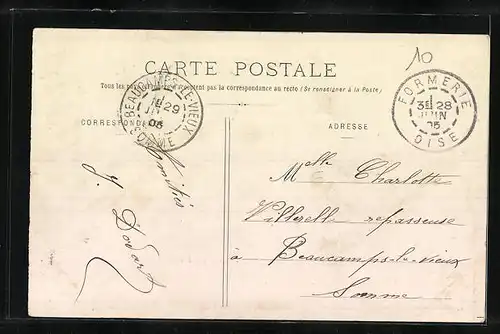 10
CARTE POSTALE
Tous les pays étrangers n'acceptent pas la correspondance au recto (Se renseigner à la Poste)
BEAUCAMPS-LE-VIEUX
29
JUIN
05
SOMME
FORMERIE
3E 28
JUIN
05
OISE
CORRESPONDANCE
ADRESSE
Amitiés
Melle Charlotte
Villerelle repasseuse
à Beaucamps-le-Vieux
Somme